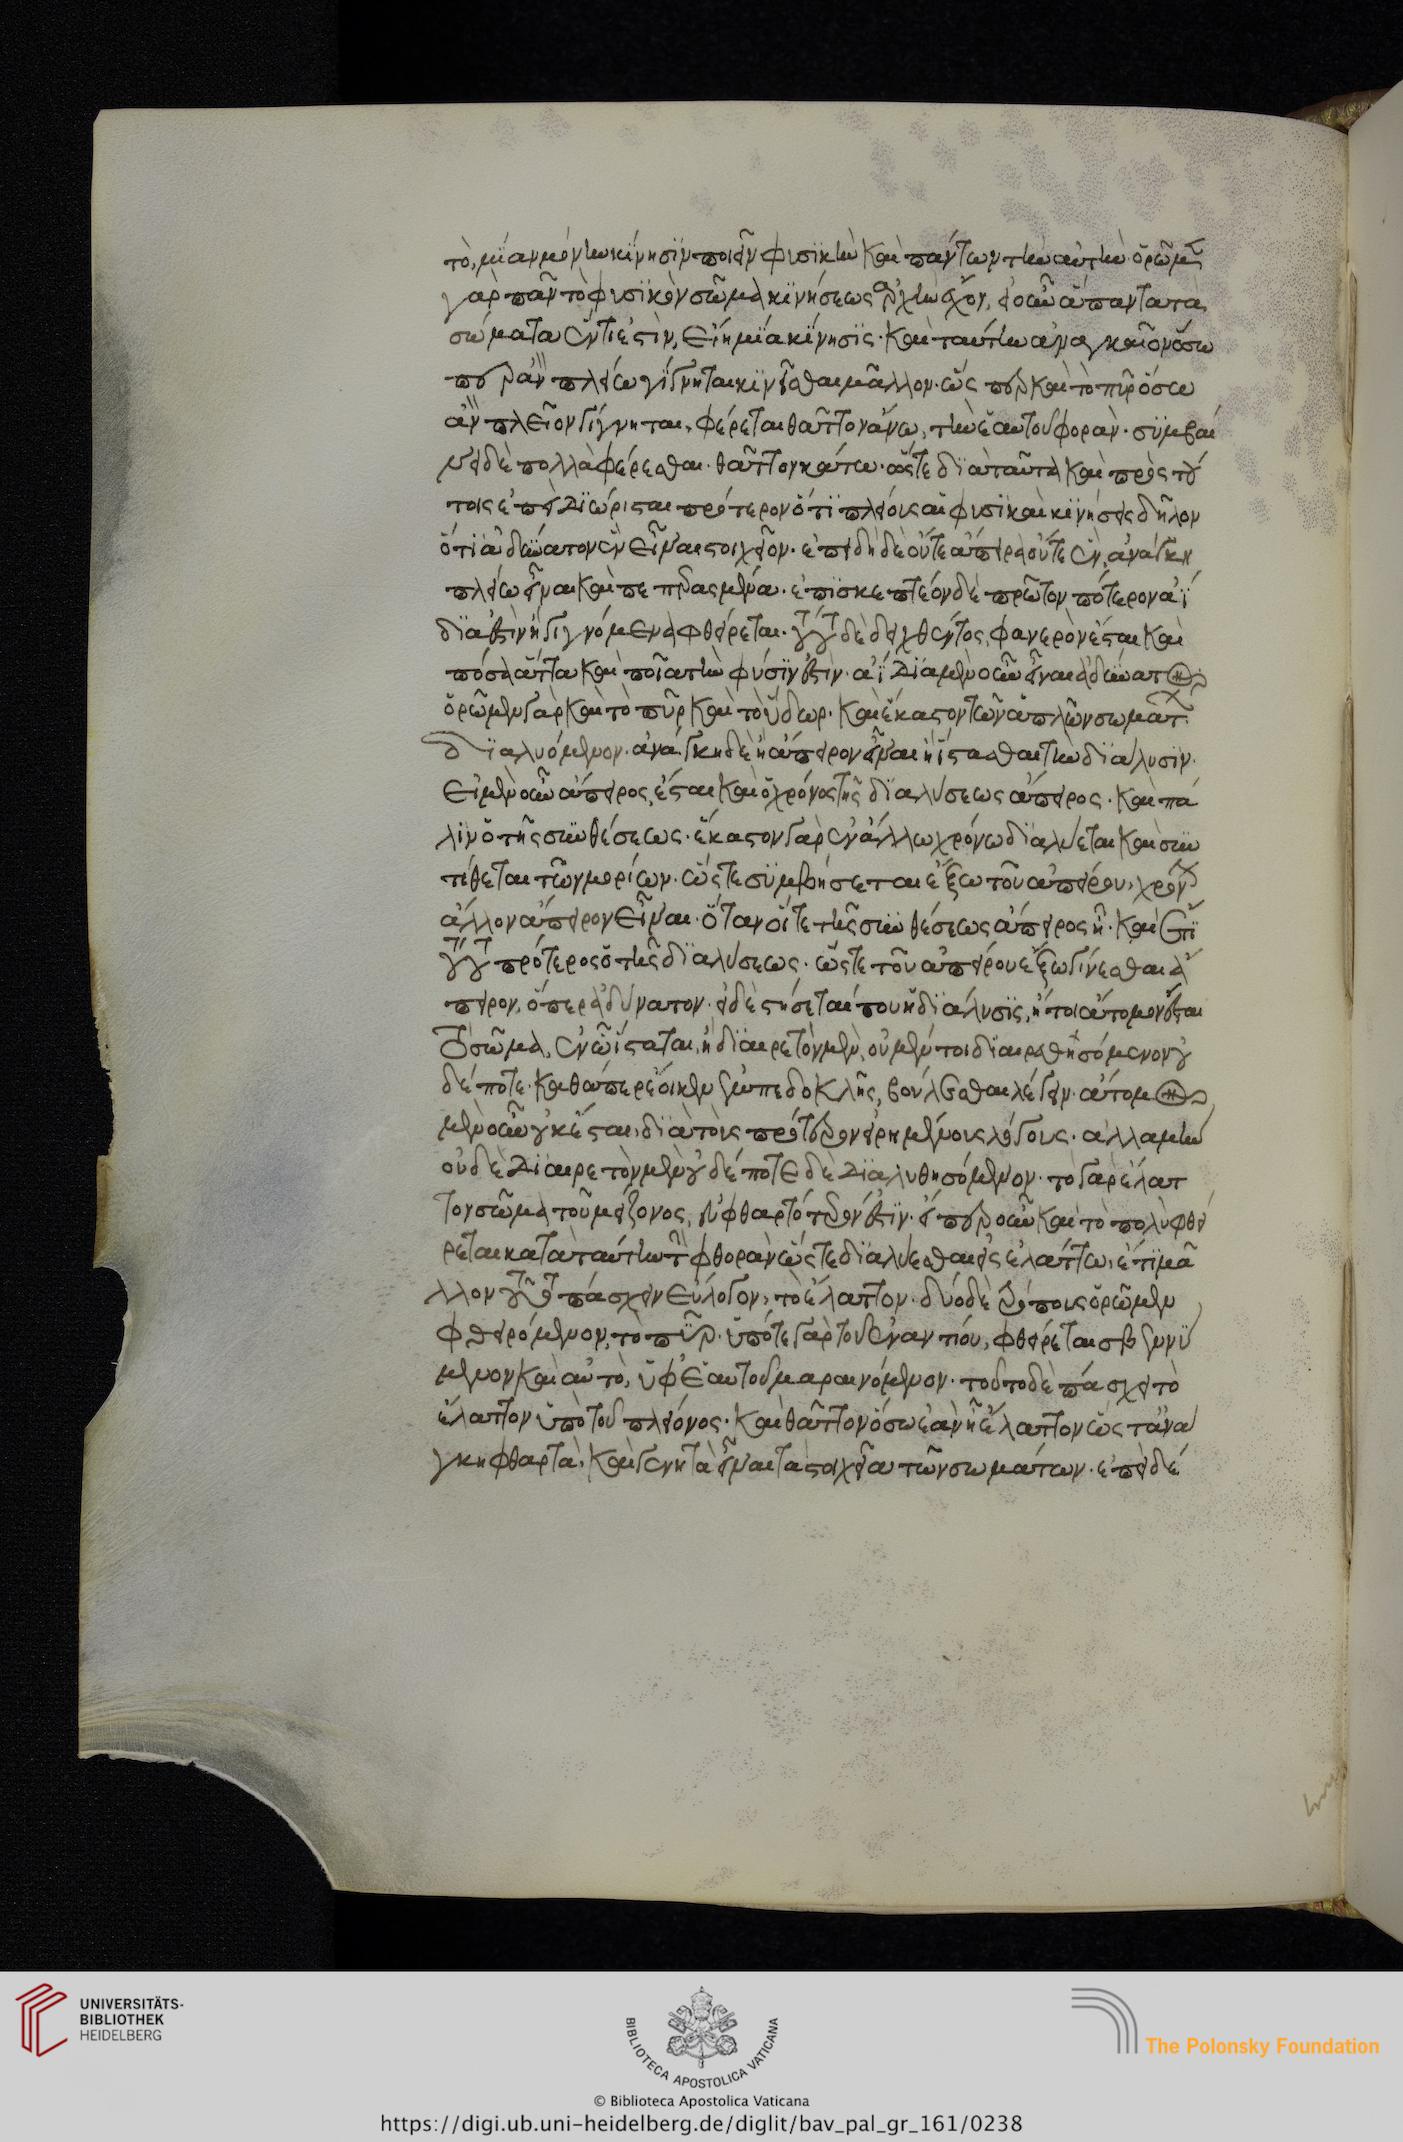 τὸ, μίαν μόνην κίνησιν ποιεῖν φυσικὴν καὶ πάντων τὴν αὐτήν· ὁρῶμεν
γὰρ πᾶν τὸ φυσικὸν σῶμα κινήσεως ἀρχὴν ἔχον, εἰ οὖν ἅπαντα τὰ
σώματα ἕν τι ἐστὶν, εἴη μία κίνησις· καὶ ταύτην ἀναγκαῖον ὅσῳ
περ ἂν πλείω γίγνηται κινεῖσθαι μᾶλλον· ὥσπερ καὶ τὸ πῦρ ὅσῳ
ἂν πλεῖον γίγνηται, φέρεται θᾶττον ἄνω, τὴν ἑαυτοῦ φοράν· συμβαί
νει δὲ πολλὰ φέρεσθαι θᾶττον κάτω· ὥστε διὰ ταῦτα καὶ πρὸς τού
τοις ἐπεὶ διώρισται πρότερον ὅτι πλείους αἱ φυσικαὶ κινήσεις δῆλον
ὅτι ἀδύνατον ἓν εἶναι στοιχεῖον· ἐπειδὴ δὲ οὔτε ἄπειρα οὔτε ἓν, ἀνάγκη
πλείω εἶναι καὶ πεπερασμένα· ἐπισκεπτέον δὲ πρῶτον πότερον ἀΐ
διά ἐστιν ἢ γιγνόμενα φθείρεται· τούτου δὲ δειχθέντος, φανερὸν ἔσται καὶ
πόσα ἄττα καὶ ποῖα τὴν φύσιν ἐστίν· ἀΐδια μὲν οὖν εἶναι ἀδύνατον
ὁρῶμεν γὰρ καὶ τὸ πῦρ καὶ τὸ ὕδωρ· καὶ ἕκαστον τῶν ἁπλῶν σωμάτων
διαλυόμενον· ἀνάγκη δὲ ἢ ἄπειρον εἶναι ἢ ἵστασθαι τὴν διάλυσιν·
εἰ μὲν οὖν ἄπειρος, ἔσται καὶ ὁ χρόνος τῆς διαλύσεως ἄπειρος· καὶ πά
λιν ὁ τῆς συνθέσεως· ἕκαστον γὰρ ἐν ἄλλῳ χρόνῳ διαλύεται καὶ συν
τίθεται τῶν μορίων· ὥστε συμβήσεται ἔξω τοῦ ἀπείρου, χρόνον
ἄλλον ἄπειρον εἶναι· ὅταν ὅ τε τῆς συνθέσεως ἄπειρος ᾖ· καὶ ἔτι
τούτου πρότερος ὁ τῆς διαλύσεως· ὥστε τοῦ ἀπείρου ἔξω γίνεσθαι ἄ
πειρον, ὅπερ ἀδύνατον· εἰ δὲ στήσεταί που ἡ διάλυσις, ἤτοι ἄτομον ἔσται
τὸ σῶμα, ἐν ᾧ ἵσταται, ἢ διαιρετὸν μὲν, οὐ μέντοι διαιρεθησόμενον οὐ
δέποτε· καθάπερ ἔοικεν ἐμπεδοκλῆς, βούλεσθαι λέγειν· ἄτομον
μὲν οὖν οὐκ ἔσται, διὰ τοὺς πρότερον εἰρημένους λόγους· ἀλλὰ μὴν
οὐδὲ διαιρετὸν μὲν οὐδέποτε δὲ διαλυθησόμενον· τὸ γὰρ ἔλατ
τον σῶμα τοῦ μείζονος, εὐφθαρτότερόν ἐστιν· εἴπερ οὖν καὶ τὸ πολὺ φθεί
ρεται κατὰ ταύτην τὴν φθορὰν ὥστε διαλύεσθαι εἰς ἐλάττω, ἔτι μᾶ
λλον τοῦτο πάσχειν εὔλογον, τὸ ἔλαττον· δύο δὲ τρόπους ὁρῶμεν
φθειρόμενον, τὸ πῦρ· ὑπό τε γὰρ τοῦ ἐναντίου, φθείρεται σβεννύ
μενον καὶ αὐτὸ, ὑφ' ἑαυτοῦ μαραινόμενον· τοῦτο δὲ πάσχει τὸ
ἔλαττον ὑπὸ τοῦ πλείονος· καὶ θᾶττον ὅσῳ ἐὰν ᾖ ἔλαττον ὥστ' ἀνά
γκη φθαρτὰ, καὶ γενητὰ εἶναι τὰ στοιχεῖα τῶν σωμάτων· ἐπεὶ δέ
UNIVERSITÄTS-
BIBLIOTHEK
HEIDELBERG
BIBLIOTECA APOSTOLICA VATICANA
The Polonsky Foundation
© Biblioteca Apostolica Vaticana
https://digi.ub.uni-heidelberg.de/diglit/bav_pal_gr_161/0238